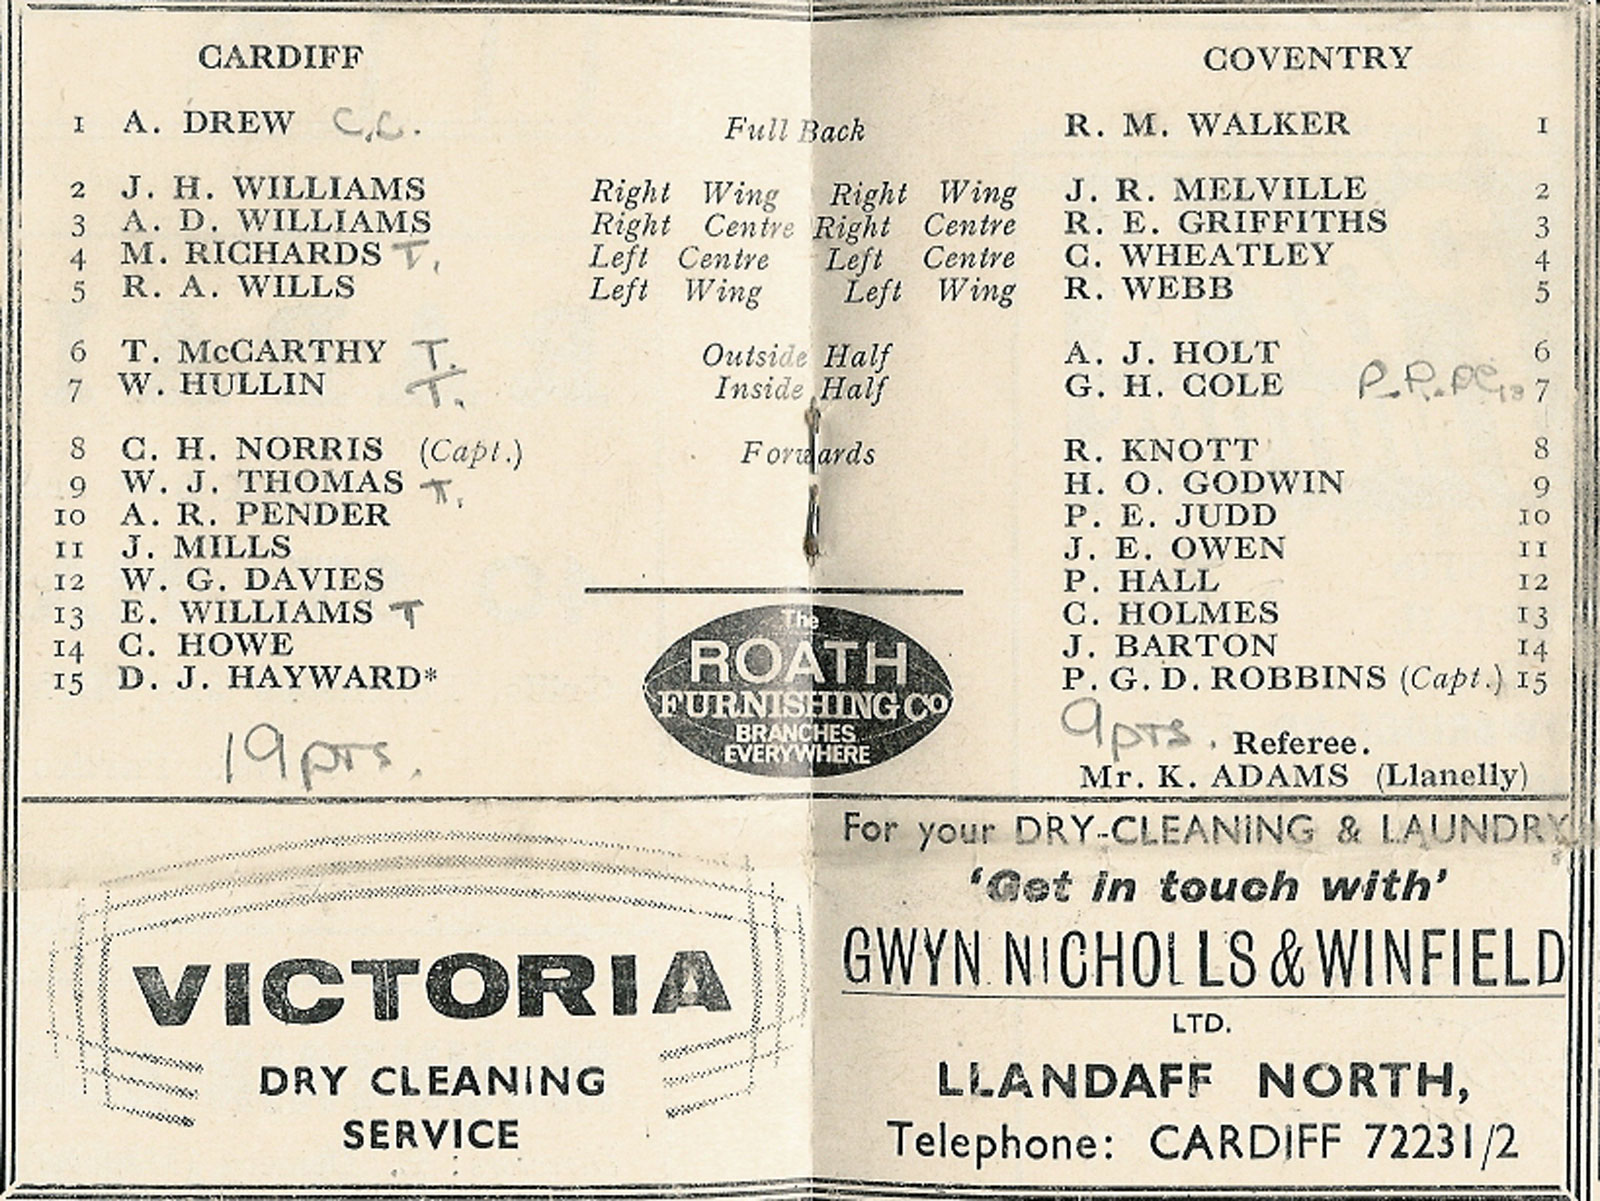 CARDIFF
1 A. DREW C.C.
2 J. H. WILLIAMS
3 A. D. WILLIAMS
4 M. RICHARDS T.
5 R. A. WILLS
6 T. McCARTHY T.
7 W. HULLIN T.
8 C. H. NORRIS (Capt.)
9 W. J. THOMAS T.
10 A. R. PENDER
11 J. MILLS
12 W. G. DAVIES
13 E. WILLIAMS T
14 C. HOWE
15 D. J. HAYWARD*
19 pts.
Full Back
Right Wing Right Wing
Right Centre Right Centre
Left Centre Left Centre
Left Wing Left Wing
Outside Half
Inside Half
Forwards
The
ROATH
FURNISHING Co
BRANCHES
EVERYWHERE
COVENTRY
R. M. WALKER 1
J. R. MELVILLE 2
R. E. GRIFFITHS 3
C. WHEATLEY 4
R. WEBB 5
A. J. HOLT 6
G. H. COLE 7
R. KNOTT 8
H. O. GODWIN 9
P. E. JUDD 10
J. E. OWEN 11
P. HALL 12
C. HOLMES 13
J. BARTON 14
P. G. D. ROBBINS (Capt.) 15
9 pts. Referee.
Mr. K. ADAMS (Llanelly)
VICTORIA
DRY CLEANING
SERVICE
For your DRY-CLEANING & LAUNDRY
'Get in touch with'
GWYN NICHOLLS & WINFIELD
LTD.
LLANDAFF NORTH,
Telephone: CARDIFF 72231/2